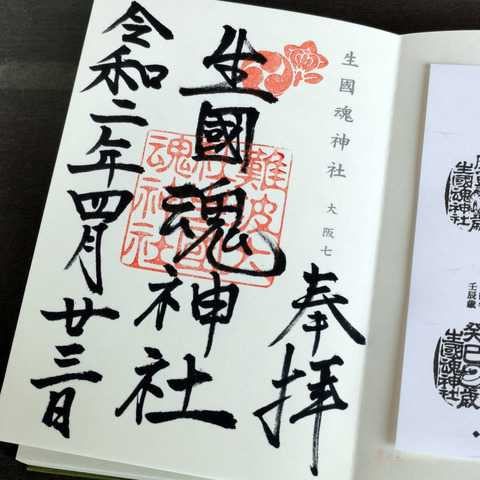 生國魂神社
大阪七
奉拝
生國魂神社
令和二年四月廿三日
難波大
魂神社
生國魂神社
壬辰歳
癸巳歳
生國魂神社